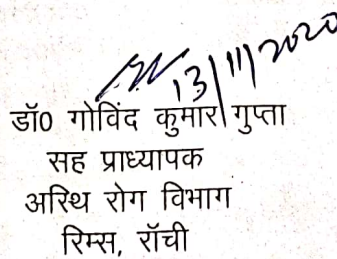 13/11/2020
डॉ0 गोविंद कुमार गुप्ता
सह प्राध्यापक
अस्थि रोग विभाग
रिम्स, राँची